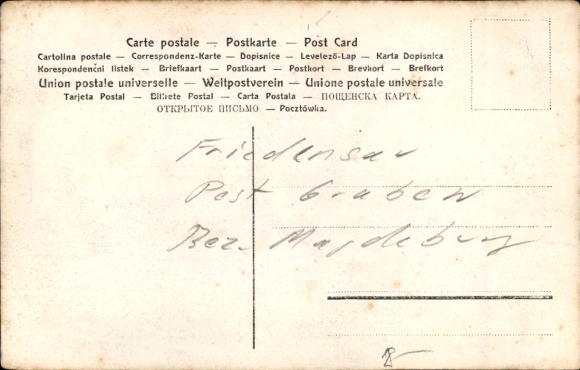 Carte postale — Postkarte — Post Card
Cartolina postale — Correspondenz-Karte — Dopisnice — Levelező-Lap — Karta Dopisnica
Korespondenčni listek — Briefkaart — Postkaart — Postkort — Brevkort — Brefkort
Union postale universelle — Weltpostverein — Unione postale universale
Tarjeta Postal — Bilhete Postal — Carta Postala — ПОЩЕНСКА КАРТА.
ОТКРЫТОЕ ПИСЬМО. — Pocztówka.
Friedensau
Post Graben
Bez. Magdeburg